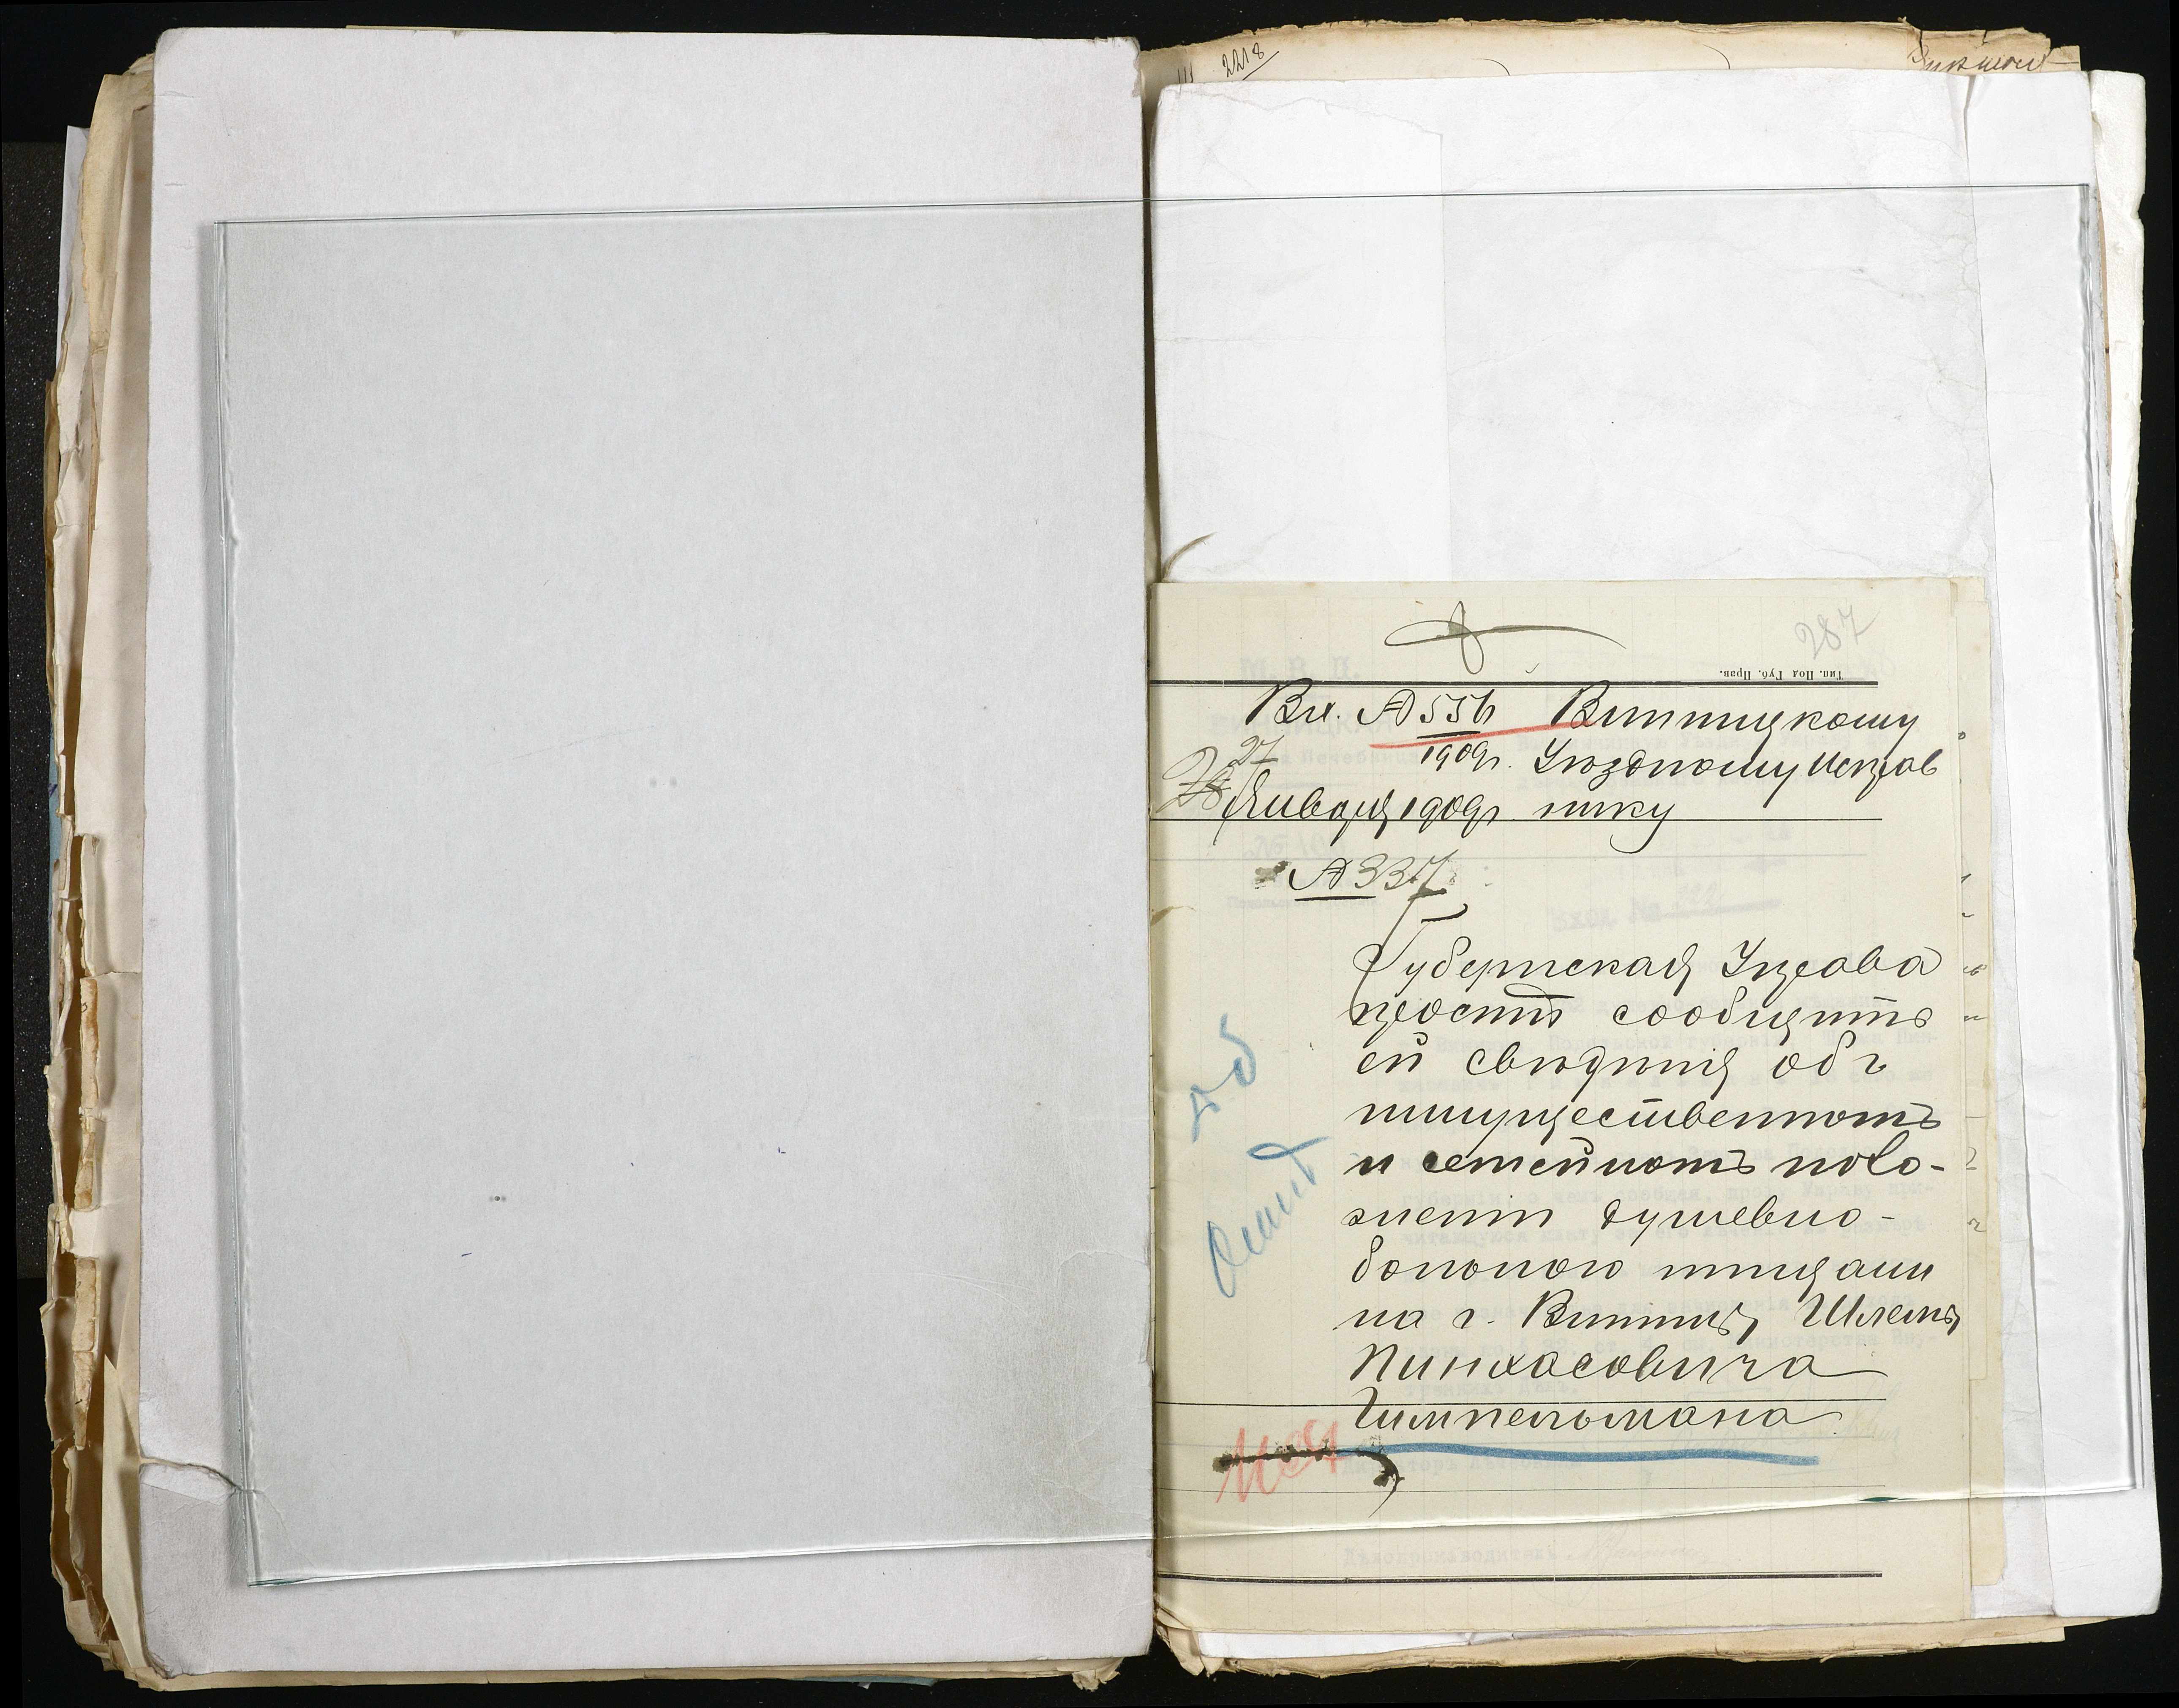 2218
287
Тип. Под Губ. Прав.
Вх. № 556 Винницкому
1909г. Уѣздному Исправ
27
Января 1909г. нику
№ 337
Губернская Управа
проситъ сообщить
ей свѣдѣнія объ
имущественномъ
и семейномъ поло-
женіи душевно-
больного мѣщани
на г. Винницы Шлемы
Пинхасовича
Гимпельмана